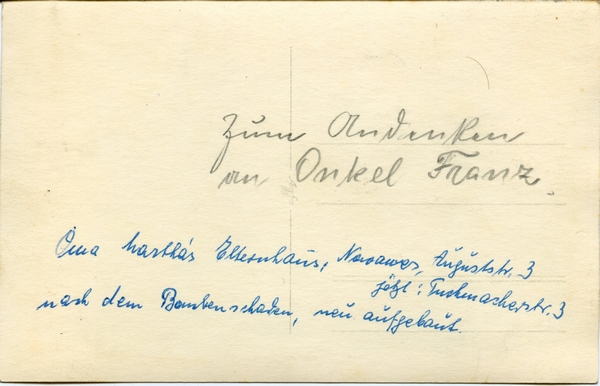 Zum Andenken
an Onkel Franz.
Oma Martha's Elternhaus, Nowawes, Auguststr. 3
jetzt: Tuchmacherstr. 3
nach dem Bombenschaden, neu aufgebaut.